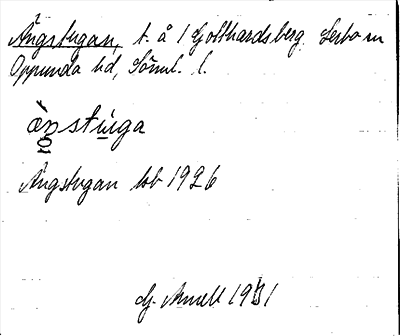 Ängstugan, t. å 1 Gotthardsberg Lerbo sn
Oppunda hd, Söml. l.
ö̀ŋstúga
Ängstugan lsb 1926
G. Arnell 1931